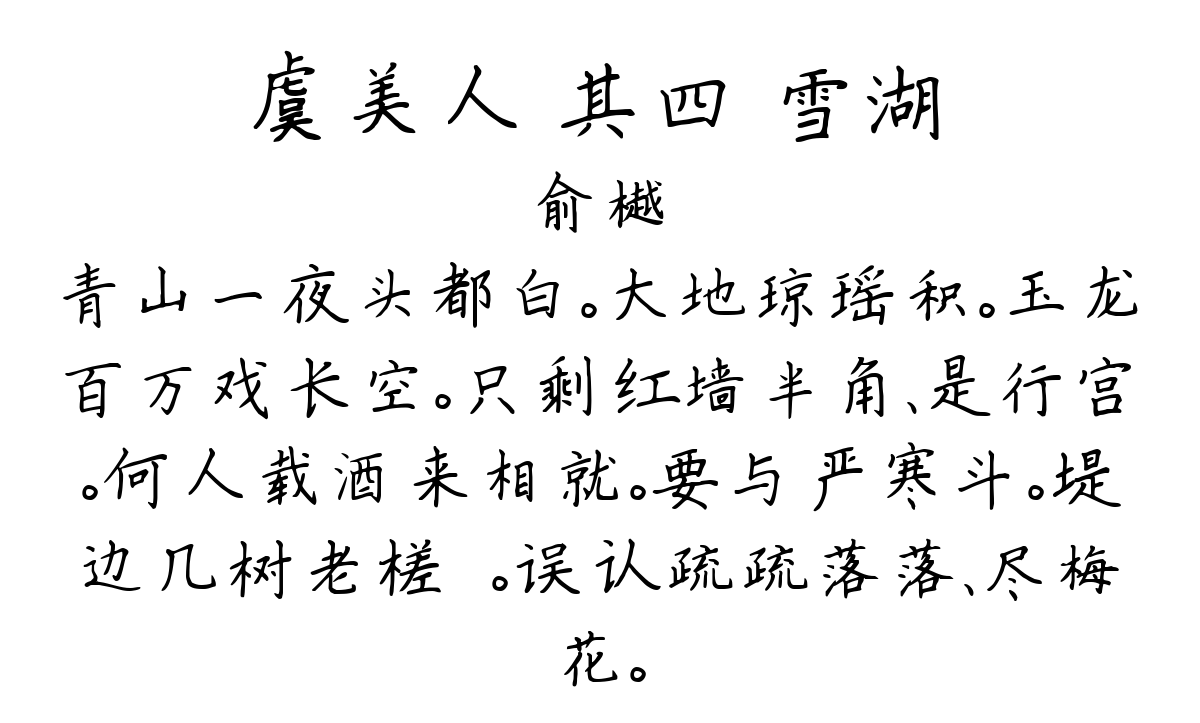 虞美人 其四 雪湖
俞樾
青山一夜头都白。大地琼瑶积。玉龙
百万戏长空。只剩红墙半角、是行宫
。何人载酒来相就。要与严寒斗。堤
边几树老槎 。误认疏疏落落、尽梅
花。